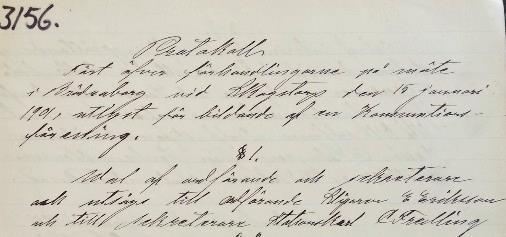 3156.
Protokoll
Fört öfver förhandlingarne på möte
i Brödsaborg vid Skogstorp den 15 januari
1901, utlyst för bildande af en Konsumtions-
förening.
§ 1.
Wal af ordförande och sekreterare
och utsågs till ordförande Hjarne E Eriksson
och till sekreterare Stationskarl C Freiling